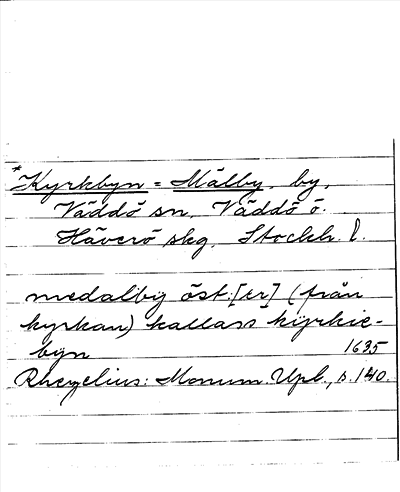 *Kyrkbyn = Mälby, by,
Väddö sn, Väddö o.
Häverö skg, Stockh. l.
medalby öst.[er] (från
kyrkan) kallass kyrkie-
byn 1635
Rhezelius: Monum. Upl., s. 140.